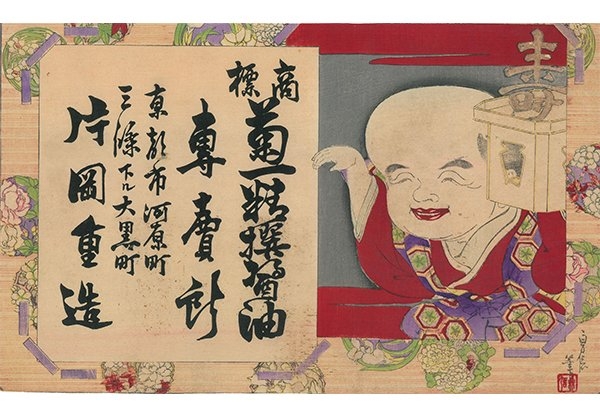 寿
商標
菊一精撰醤油
專賣所
京都市河原町
三條下ル大黒町
片岡重造